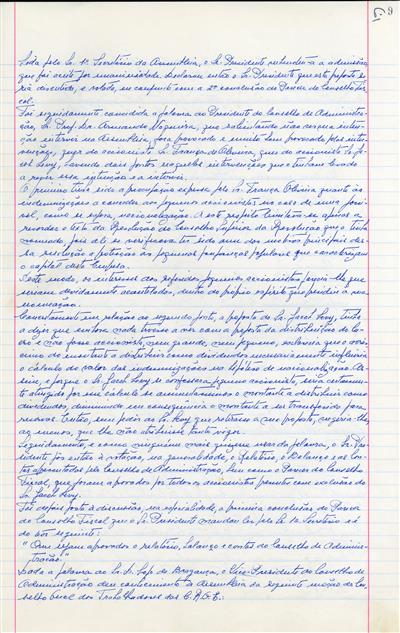 9
Lida pelo Sr. 1º Secretário da Assembleia, o Sr. Presidente submeteu-a a admissão,
que foi aceite por unanimidade. Declarou então o Sr. Presidente que esta proposta se-
ria discutida, e votada em conjunto com a 2ª conclusão do Parecer do Conselho Fis-
cal.
Foi seguidamente concedida a palavra ao Presidente do Conselho de Administra-
ção, Sr. Prof. Dr. Armando Nogueira, que salientando não ser sua inten-
ção intervir na Assembleia, fora levado a mudar
quer do accionista Sr. França de Oliveira, quer do accionista Sr. Ja-
cob Levy, havendo dois pontos naquelas intervenções que o tinham levado
a rever essa intenção e a intervir.
O primeiro tinha sido a preocupação expressa pelo Sr. França Oliveira quanto às
indemnizações a conceder aos pequenos accionistas no caso de uma possí-
vel, como se espera, nacionalização. A este respeito limitou-se apenas a
recordar o texto da Resolução do Conselho Superior da Revolução que o tinha
nomeado, pois ali se verificava ter sido um dos motivos principais des-
ta resolução a protecção às pequenas poupanças populares que
o capital desta Empresa.
Deste modo, os interesses dos referidos pequenos accionistas
seriam devidamente acautelados, dentro do próprio espírito que presidiu à sua
nomeação.
em relação ao segundo ponto, a proposta do Sr. Jacob Levy, tinha
a dizer que embora nada tivesse a ver com a proposta da distribuição do lu-
cro e não fosse accionista, nem grande, nem pequeno,
do montante a distribuir como dividendos necessariamente influiria
o cálculo do valor das indemnizações na hipótese de nacionalização. As-
sim, e porque o Sr. Jacob Levy se confessara pequeno accionista, seria certamente
atingido por esse cálculo se aumentássemos o montante a distribuir como
dividendos, diminuindo em consequência o montante a ser transferido para
reservas. Então, sem pedir ao Sr. Levy que retirasse a sua proposta, sugeria-lhe,
ao menos, que lhe não atribuísse tanto vigor.
Seguidamente, e como ninguém mais quisesse usar da palavra, o Sr. Pre-
sidente pôs então à votação, na generalidade, o Relatório, o Balanço e as Con-
tas apresentados pelo Conselho de Administração, bem como o Parecer do Conselho
Fiscal, que foram aprovados por todos os accionistas presentes com exclusão do
Sr. Jacob Levy.
Foi depois posta à discussão, na especialidade, a primeira conclusão do Parecer
do Conselho Fiscal que o Sr. Presidente mandou ler pelo Sr. 1º Secretário e é
do teor seguinte:
"Que sejam aprovados o relatório, balanço e contas do Conselho de Adminis-
tração."
Dada a palavra ao Sr. Dr. de Bragança, o Vice-Presidente do Conselho de
Administração deu conhecimento à Assembleia da seguinte moção do Con-
selho Geral dos Trabalhadores das C.R.G.E.: